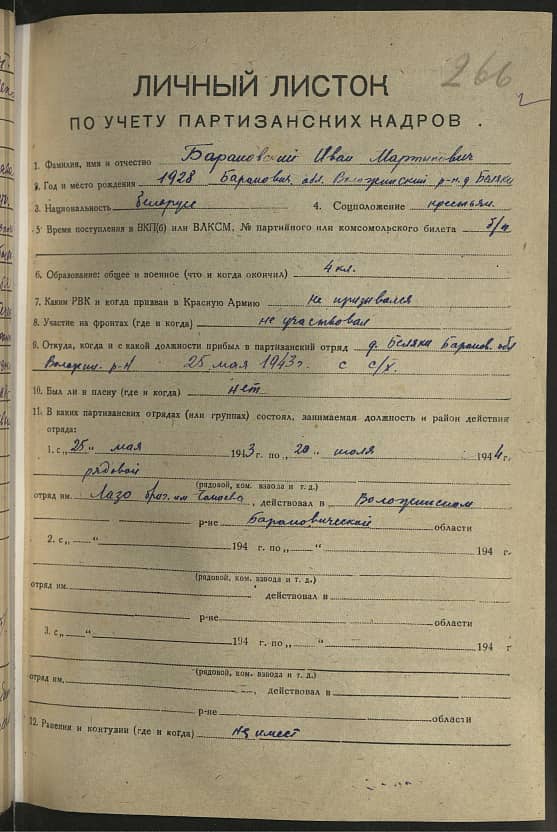 266
ЛИЧНЫЙ ЛИСТОК
ПО УЧЕТУ ПАРТИЗАНСКИХ КАДРОВ.
1. Фамилия, имя и отчество Барановский Иван Мартинович
2. Год и место рождения 1928 Баранович. обл. Воложинский р-н д. Беляки
3. Национальность белорус 4. Соцположение крестьян.
5 Время поступления в ВКП(б) или ВЛКСМ, № партийного или комсомольского билета б/п
6. Образование: общее и военное (что и когда окончил) 4 кл.
7. Каким РВК и когда призван в Красную Армию не призывался
8. Участие на фронтах (где и когда) не участвовал
9. Откуда, когда и с какой должности прибыл в партизанский отряд д. Беляки Баранов. обл
Воложин. р-н 25 мая 1943 г. с с/х.
10. Был ли в плену (где и когда) нет
11. В каких партизанских отрядах (или группах) состоял, занимаемая должность и район действия
отряда:
1. с „25" мая 1943 г. по „20" июля 1944 г.
рядовой
(рядовой, ком. взвода и т. д.)
отряд им. Лазо бриг. им Чапаева, действовал в Воложинском
р-не Барановической области
2. с „ " 194 г. по „ " 194 г.
(рядовой, ком. взвода и т. д.)
отряд им. действовал в
р-не области
3. с „ " 194 г. по „ " 194 г
(рядовой, ком. взвода и т. д.)
отряд им. , действовал в
р-не области
12. Ранения и контузии (где и когда) не имеет